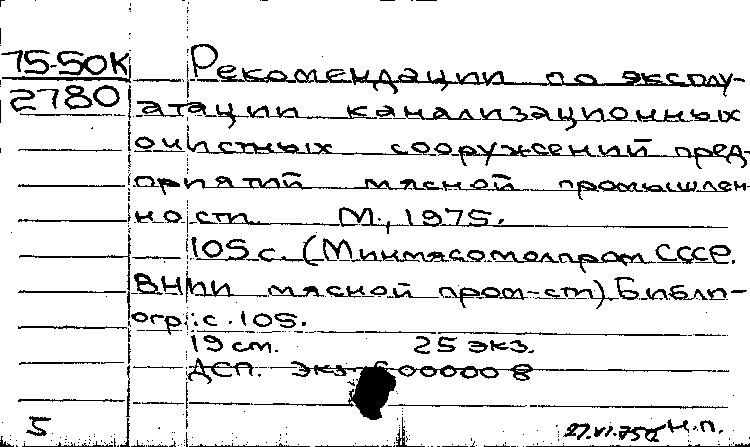 75-50К Рекомендации по эксплу-
2780 атации канализационных
очистных сооружений пред-
приятий мясной промышлен-
ности. М., 1975.
105 с. (Минмясомолпром СССР.
ВНИИ мясной пром-сти). Библи-
огр.: с. 105.
19 см. 25 экз.
ДСП. Экз. 000008
5 27.VI.75 н.п.